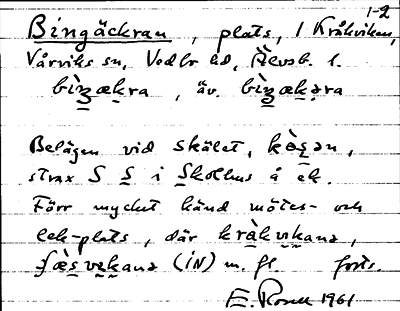 1-2
Bingäckran, plats, i Kråkviken,
Vårviks sn, Vedbo hd, Älvsb. l.
bìnʒækra, äv. bìnʒækəra
Belägen vid skälet,
strax S S i Skolhus å ek.
Förr mycket känd mötes- och
lek-plats, där kràkvikana,
fæ̀svekana (IN) m. fl. forts.
E. Rosell 1961